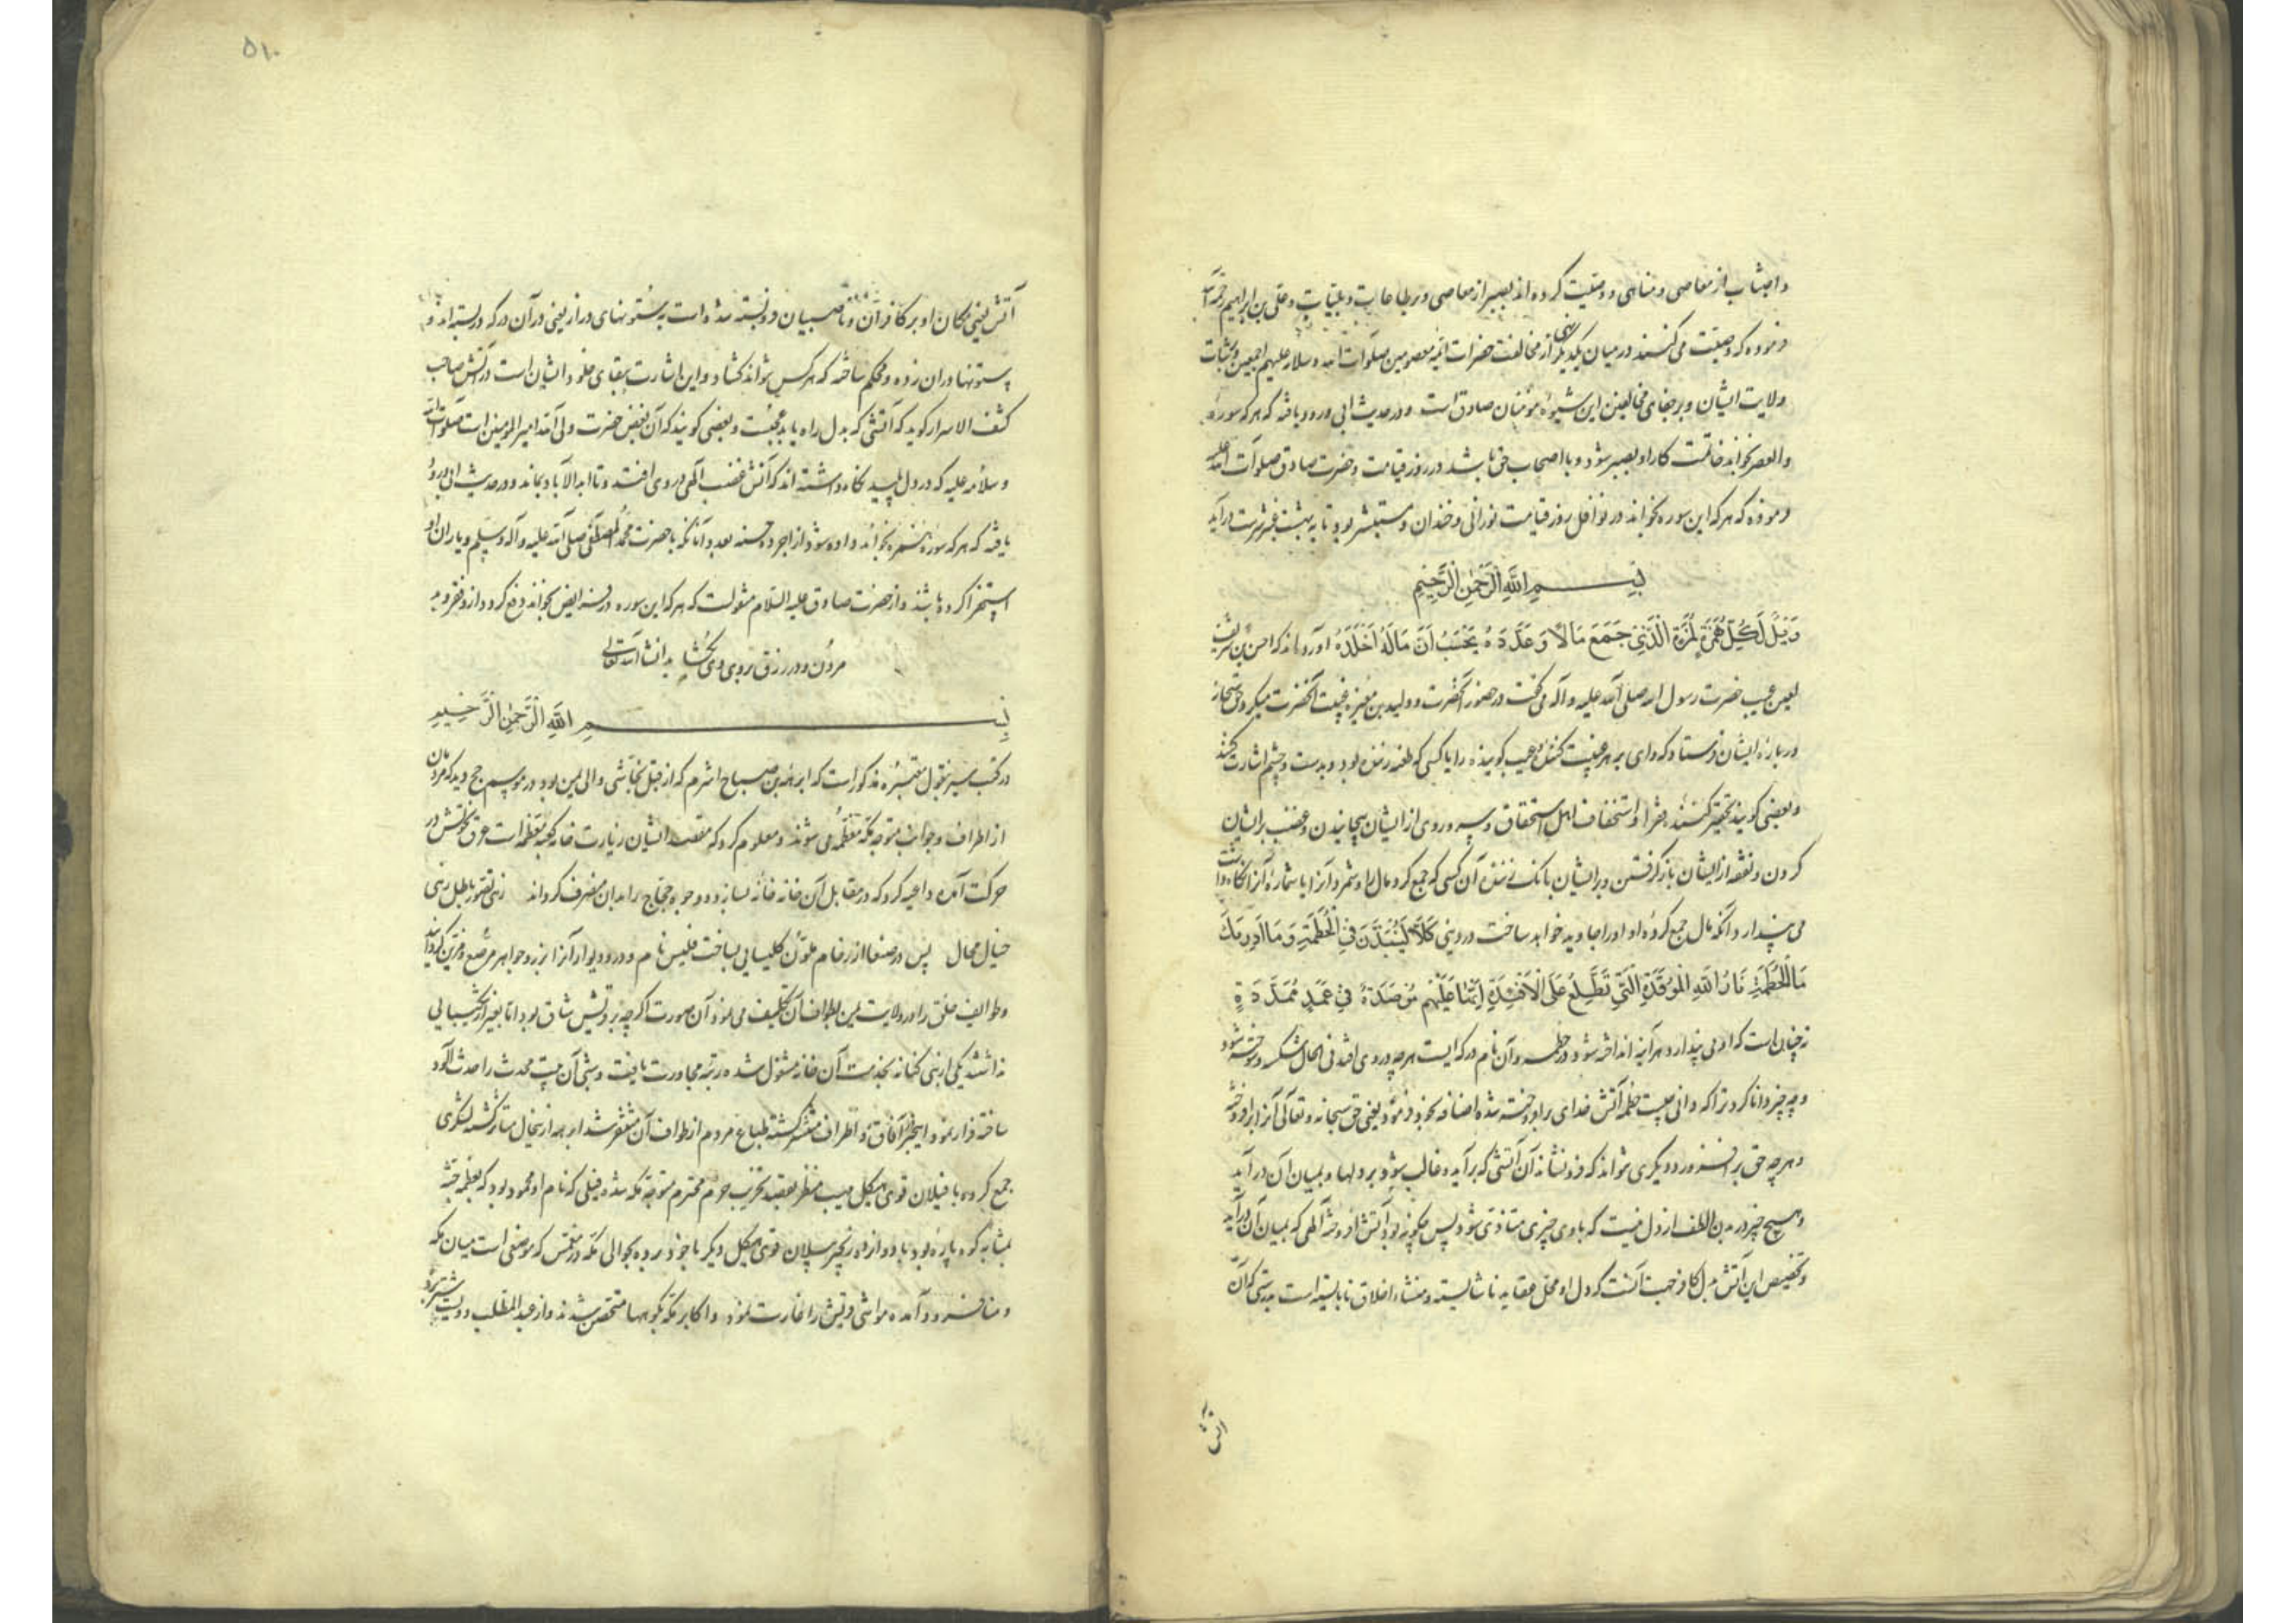 و اجتناب از معاصی و مناهی و وصیت کرده اند بصبر از معاصی و بر طاعات و بلیات و علی بن ابراهیم رحمه الله
فرموده که وصیت می کنند در میان یکدیگر از مخالفت حضرات ائمه معصومین صلوات الله و سلامه علیهم اجمعین و بثبات
ولایت ایشان و بر جفای مخالفین این شیوه مؤمنان صادق است و در حدیث ابی ورود یافته که هر که سوره
والعصر بخواند خاتمت کار او بصبر شود و با اصحاب حق باشد در روز قیامت و حضرت صادق صلوات الله علیه
فرموده که هر که این سوره بخواند در نوافل روز قیامت نورانی و خندان و مستبشر بود تا به بهشت عنبر سرشت درآید
بسم الله الرحمن الرحیم
وَیْلٌ لِکُلِّ هُمَزَةٍ لُمَزَةٍ الَّذِی جَمَعَ مَالًا وَعَدَّدَهُ یَحْسَبُ اَنَّ مَالَهُ اَخْلَدَهُ آورده اند که اخنس بن شریق
لعین عیب حضرت رسول الله صلی الله علیه و آله می گفت در حضور آنحضرت و ولید بن مغیره غیبت آنحضرت میکرد حق سبحانه
درباره ایشان فرستاد که وای بر هر غیبت کننده و عیب گوینده را یا کسی که طعنه زننده بود و بدست و چشم اشارت کند
و بعضی گویند تحقیر کنند فقرا و استخفاف اهل استحقاق و سر و روی از ایشان پیچانیدن و غضب بر ایشان
کردن و نفقه از ایشان باز گرفتن و بر ایشان بانک زننده آن کسی که جمع کرد مال را و شمرد آنرا یا شماره آنرا نگاه داشت
می پندارد آنکه مال جمع کرده او او را جاوید خواهد ساخت در دنیی کَلَّا لَیُنْبَذَنَّ فِی الْحُطَمَةِ وَمَا اَدْرٰیکَ
مَا الْحُطَمَةُ نَارُ اللهِ الْمُوقَدَةُ الَّتِی تَطَّلِعُ عَلَی الْاَفْئِدَةِ اِنَّهَا عَلَیْهِمْ مُؤْصَدَةٌ فِی عَمَدٍ مُمَدَّدَةٍ
نه چنان است که او می پندارد هر آینه انداخته شود در حطمه و آن نام درکه ایست هر چه در وی افتد فی الحال شکسته و سوخته شود
و چه چیز دانا کرد ترا که دانی چیست حطمه آتش خدای برافروخته شده اضافه بخود فرمود یعنی حق سبحانه و تعالی آنرا برافروخته
و هر چه حق برافروزد دیگری نتواند که فرو نشاند آن آتشی که برآید و غالب شود بر دلها و بمیان آن درآید
و هیچ چیز در بدن الطف از دل نیست که با وی چیزی متاذی شود پس چگونه بود آتش افروخته الهی که بمیان آن درآید
و تخصیص این آتش بدل کافر جهت آنست که دل او محل عقاید ناشایسته و منشاء اخلاق نابایسته است بدرستی که آن
آتش
۵۱۰
آتش یعنی مکان او بر کافران و ناصبیان در بسته شده است به ستونهای دراز یعنی در آن درکه در بسته اند و
ستونها در آن زده و محکم ساخته که هر کس نتواند گشاد و این اشارت ببقای خلود ایشان است در آتش صاحب
کشف الاسرار گوید که آتشی که بدل راه یابد محبت و بعضی گویند که آن بغض حضرت ولی الله امیر المومنین است صلوات الله
و سلامه علیه که در دل پلید نگاه داشته اند که آتش غضب الهی در وی افتد و تا ابد الاباد بماند و در حدیث ابی ورود
یافته که هر که سوره همزه بخواند داده شود از اجر ده حسنه بعدد آنانکه با حضرت محمد المصطفی صلی الله علیه و آله و سلم و یاران او
استهزا کرده باشند و از حضرت صادق علیه السلام منقولست که هر که این سوره در فرایض بخواند دفع گردد از او فقر و بد
مردن و در رزق بروی وی بگشاید انشاء الله تعالی
بسم الله الرحمن الرحیم
در کتب سیر بنقول معتبره مذکور است که ابرهه بن صباح اشرم که از قبل نجاشی والی یمن بود در موسم حج دید که مردمان
از اطراف و جوانب متوجه مکه معظمه می شوند و معلوم کرد که مقصد ایشان زیارت خانه کعبه معظمه است عرق نخوتش در
حرکت آمده داعیه کرد که در مقابل آن خانه خانه بسازد و وجوه حجاج را بدان مصرف گرداند زهی تصور باطل زهی
خیال محال پس در صنعا از رخام ملون کلیسایی بساخت قلیس نام و در و دیوار آنرا بزر و جواهر مرصع و مزین گردانید
و طوایف خلق را در ولایت یمن بطواف آن تکلیف می نمود آن صورت اگرچه بر قریش شاق بود اما بغیر از شکیبایی
نداشتند یکی از بنی کنانه بخدمت آن خانه مشغول شده رتبه مجاورت یافت و شبی آن بیت محدث را حدث آلود
ساخته فرار نمود این خبر در آفاق و اطراف منتشر گشته طباع مردم از طواف آن متنفر شد ابرهه ازینحال متاثر گشته لشکری
جمع کرده با فیلان قوی هیکل مهیب منظر بقصد تخریب حرم محترم متوجه مکه شده فیلی که نام او محمود بود که بعظم جثه
بمثابه کوه پاره بود با دوازده زنجیر فیلان قوی هیکل دیگر با خود برده بحوالی مکه در مغمس که موضعی است میان مکه
و منا فرود آمده مواشی قریش را غارت نمود و اکابر مکه بکوهها متحصن شدند و از عبد المطلب دویست شتر برد